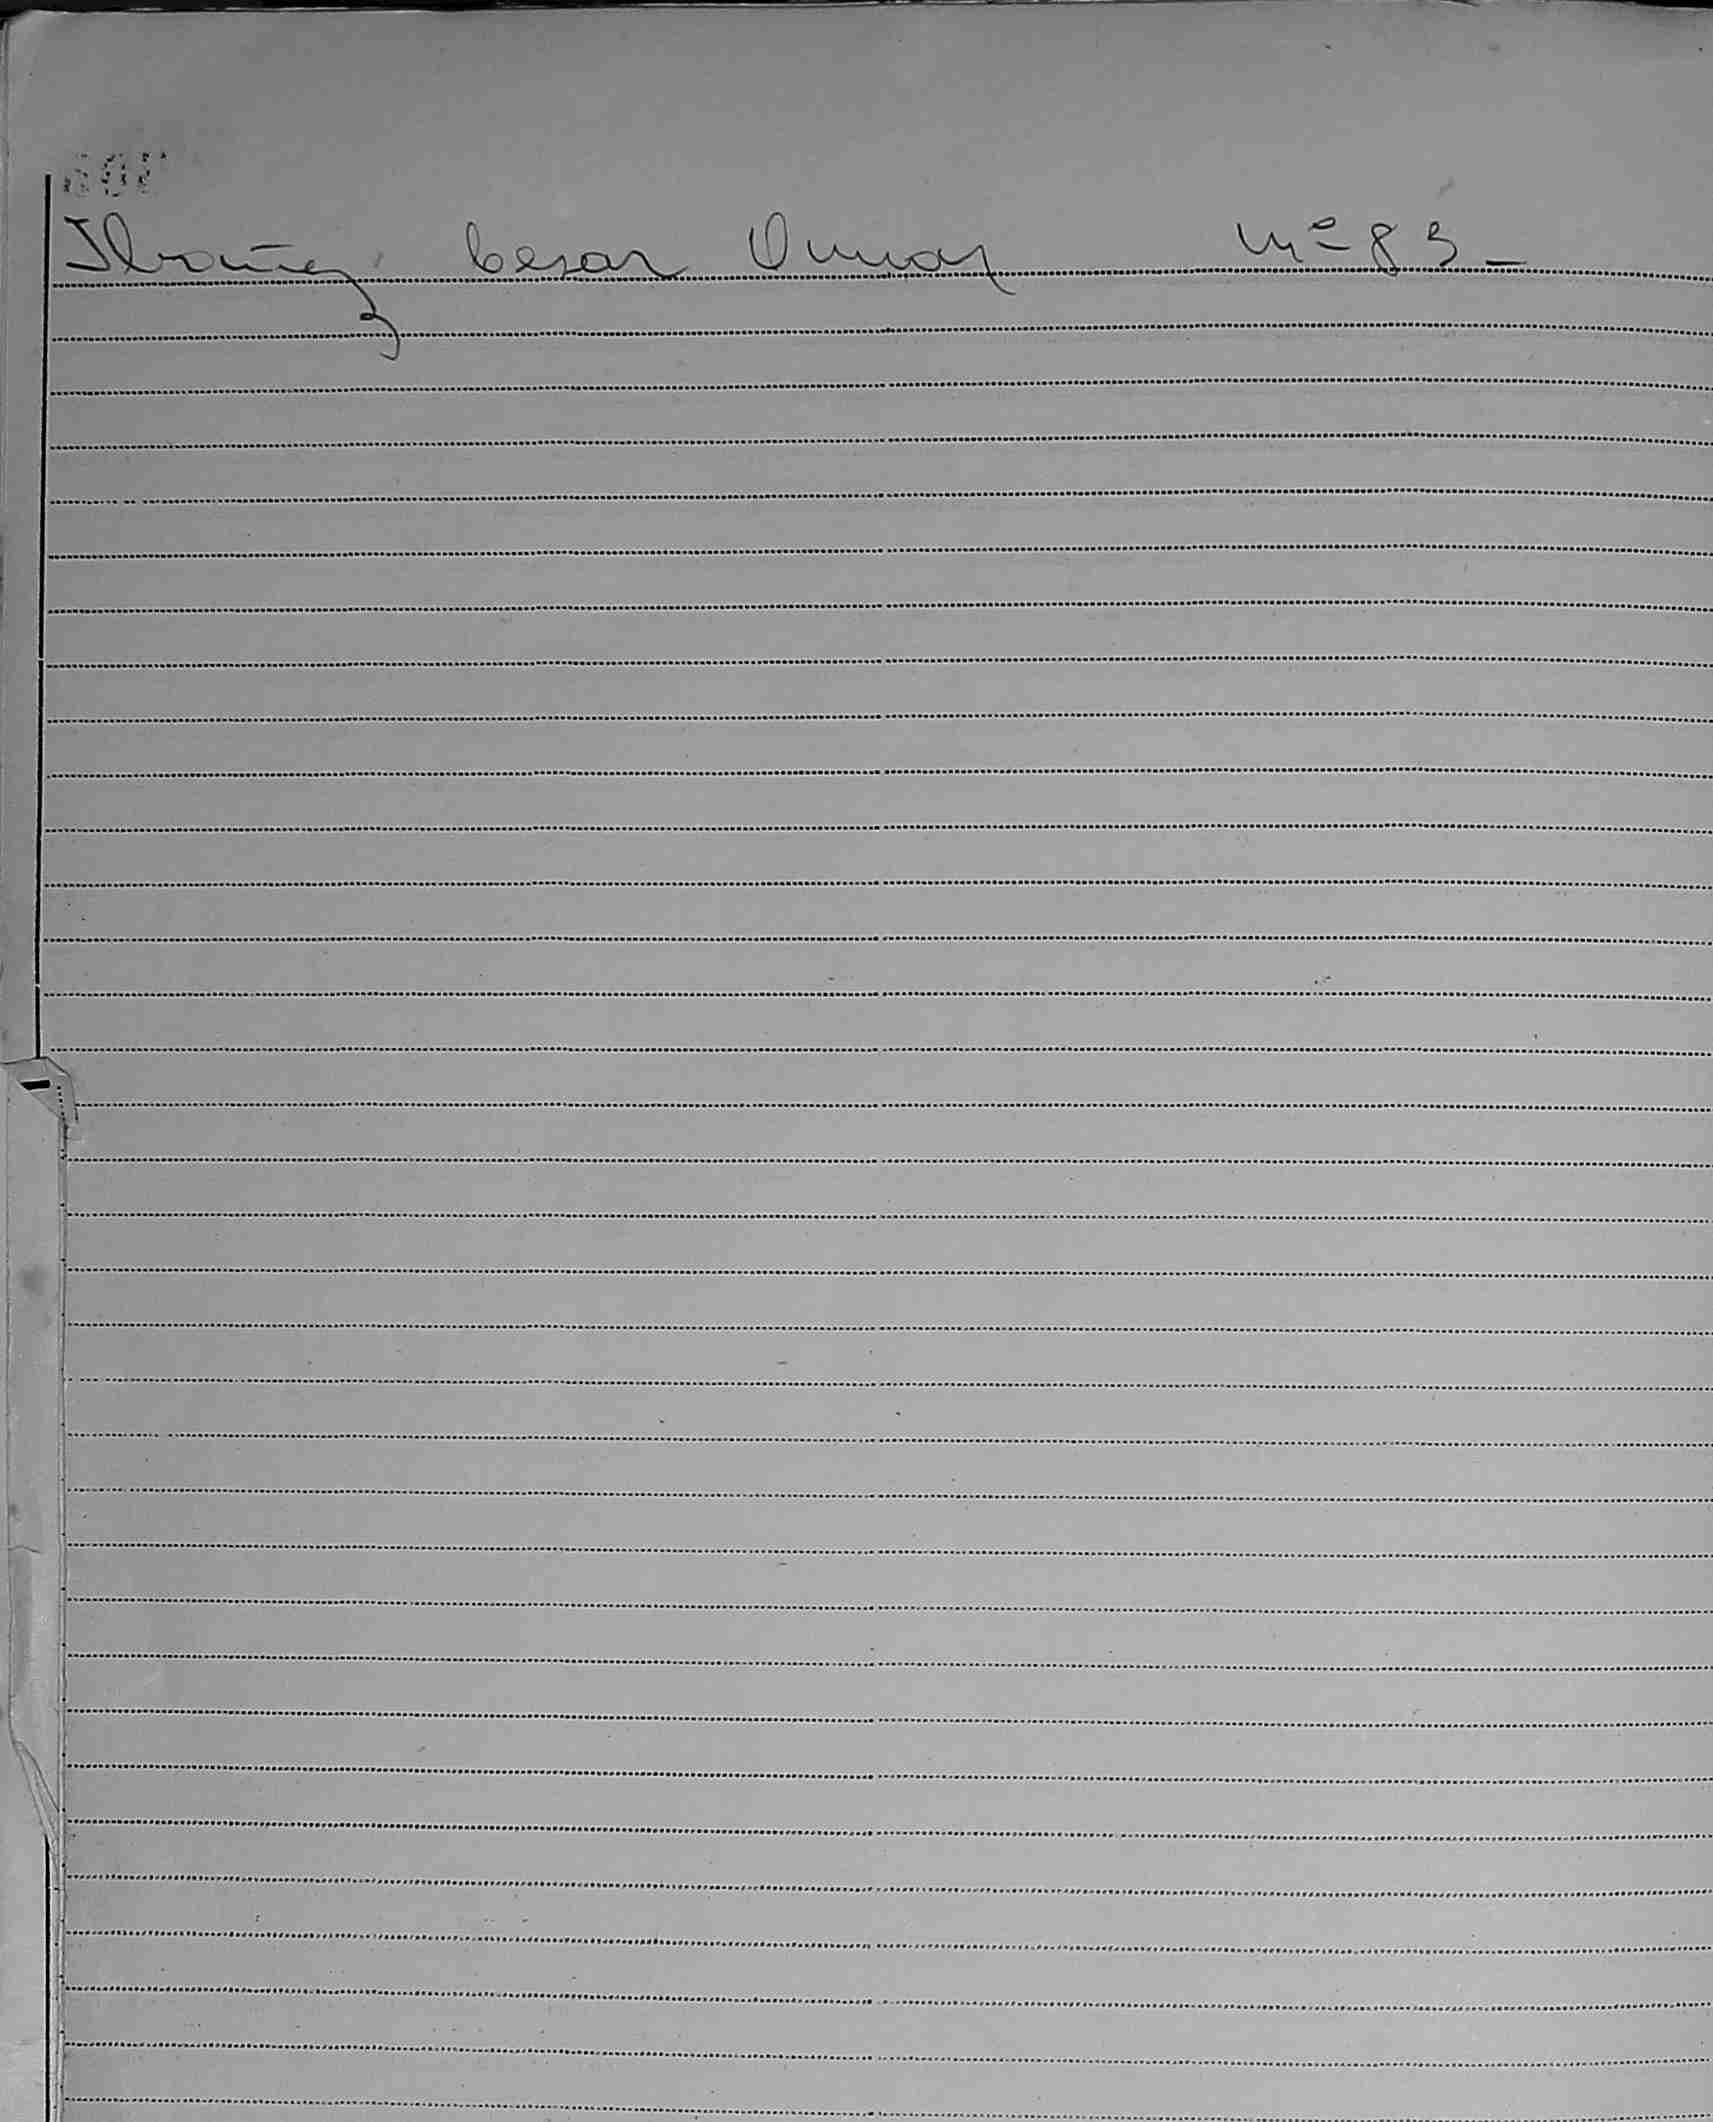 Ibañez Cesar Omar Nº 83-